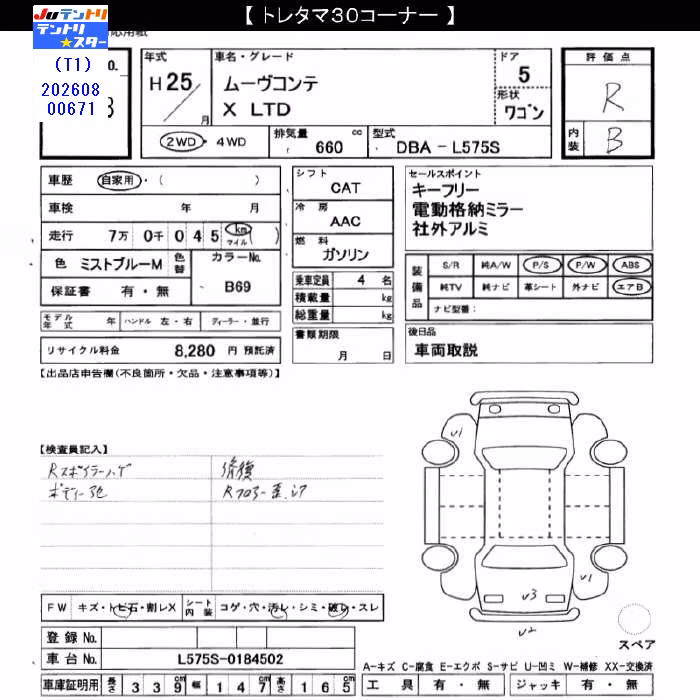 【 トレタマ30コーナー 】
JUテントリ
テントリ★スター
(T1)
202608
00671
応用紙
No.
3
年式
H 25 / 月
車名・グレード
ムーヴコンテ
X LTD
ドア
5
形状
ワゴン
評価点
R
内装
B
2WD・4WD
排気量
660 cc
型式
DBA - L575S
車歴 自家用・( )
車検 年 月
走行 7万 0千 0 4 5 km マイル ( )
色 ミストブルーM
色替
カラーNo.
B69
保証書 有・無
モデル年式 年 ハンドル 左・右 ディーラー・並行
リサイクル料金 8,280 円 預託済
シフト
CAT
冷房
AAC
燃料
ガソリン
乗車定員 4 名
積載量 kg
総重量 kg
書類期限
月 日
セールスポイント
キーフリー
電動格納ミラー
社外アルミ
装備品
S/R 純A/W P/S P/W ABS
純TV 純ナビ 革シート 外ナビ エアB
ナビ型番:
後日品
車両取説
【出品店申告欄(不良箇所・欠品・注意事項等)】
【検査員記入】
Rスポイラーハゲ
ボディー色
修復
Rフロアー歪.シワ
U1
U1
U3
U2
スペア
FW キズ・トビ石・割レX
シート内装 コゲ・穴・汚レ・シミ・破レ・スレ
登録 No.
車台 No. L575S-0184502
車庫証明用 長さ 3 3 9 cm 幅 1 4 7 cm 高さ 1 6 5 cm
A-キズ C-腐食 E-エクボ S-サビ U-凹ミ W-補修 XX-交換済
工具 有・無 ジャッキ 有・無